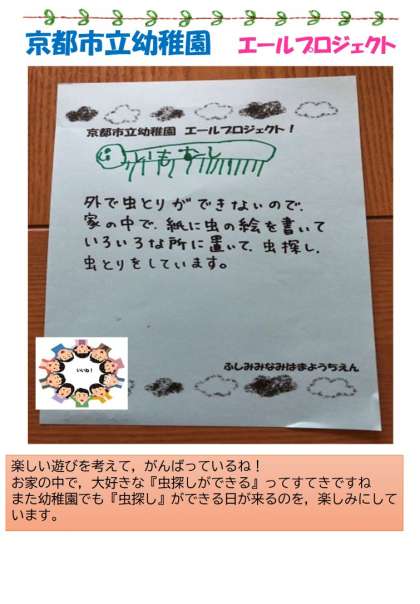 京都市立幼稚園　エールプロジェクト
京都市立幼稚園　エールプロジェクト！
外で虫とりができないので、
家の中で、紙に虫の絵を書いて
いろいろな所に置いて、虫探し、
虫とりをしています。
いいね！
ふしみみなみはまようちえん
楽しい遊びを考えて，がんばっているね！
お家の中で，大好きな『虫探しができる』ってすてきですね
また幼稚園でも『虫探し』ができる日が来るのを，楽しみにして
います。